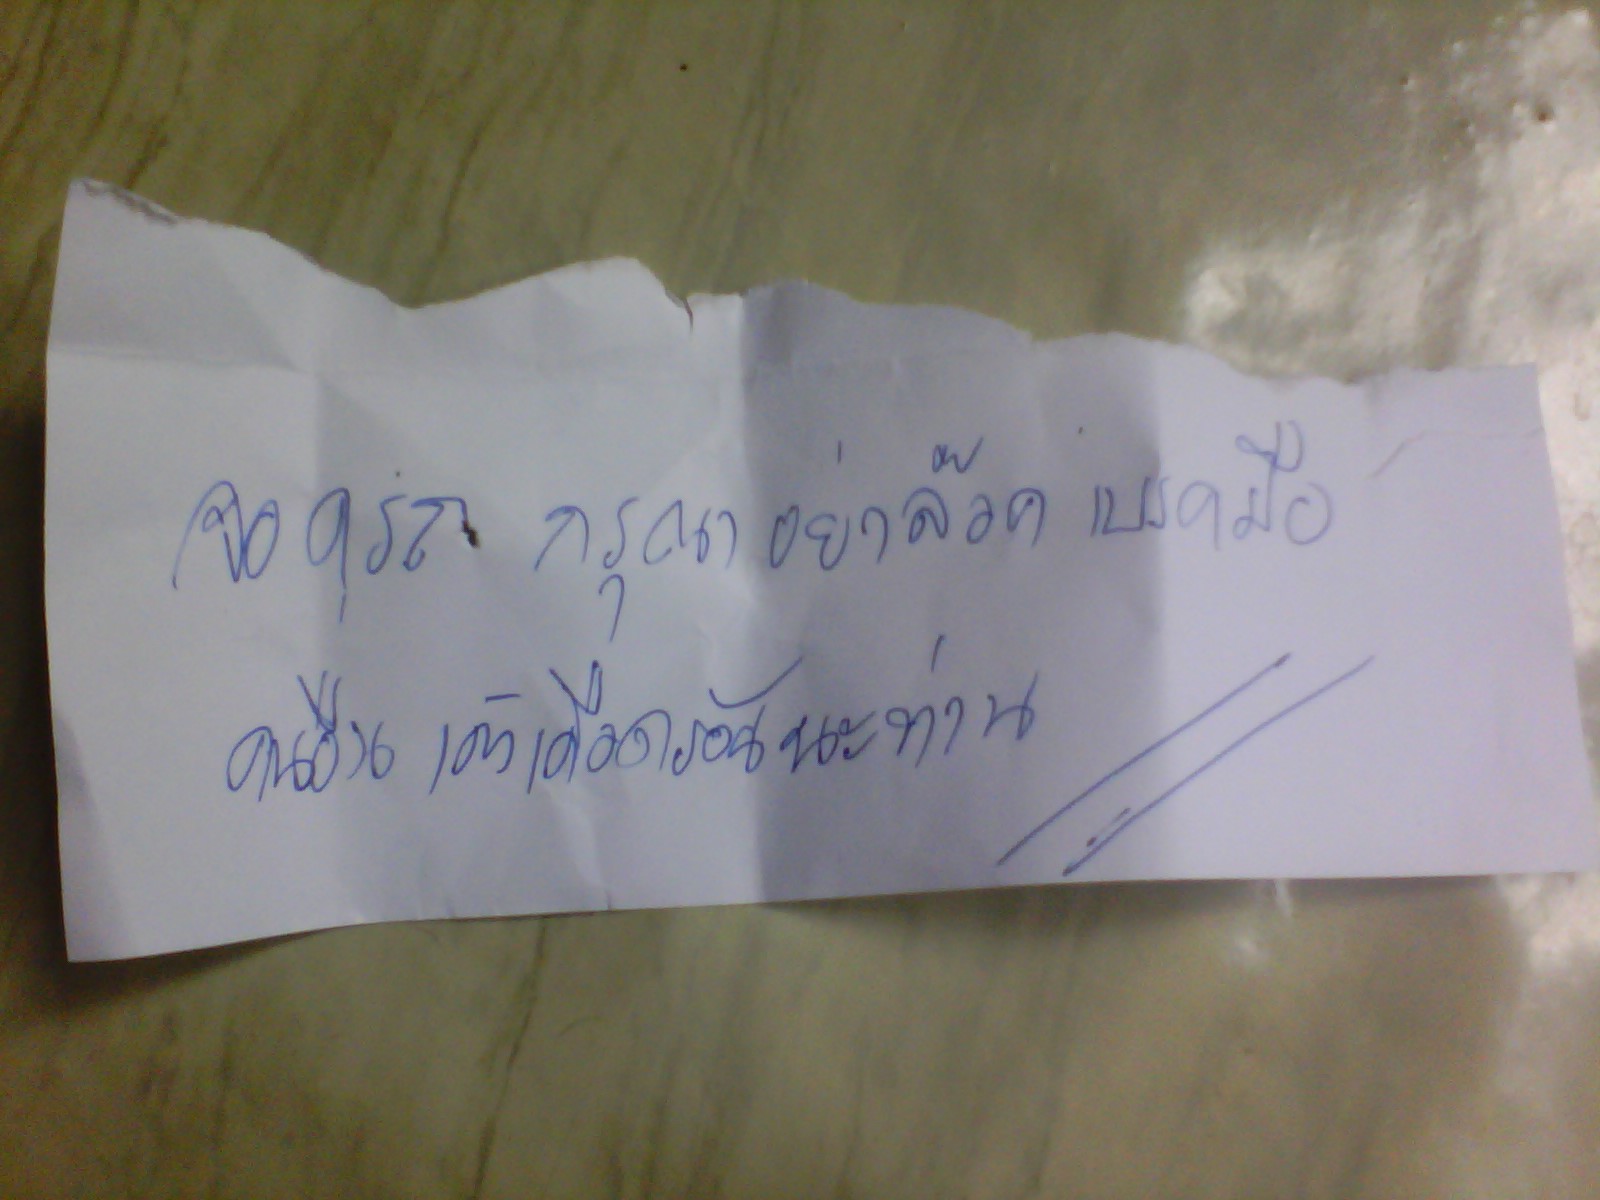 จอดรถ กรุณาอย่าล๊อคเบรคมือ
คนอื่นเค้าเดือดร้อนนะท่าน